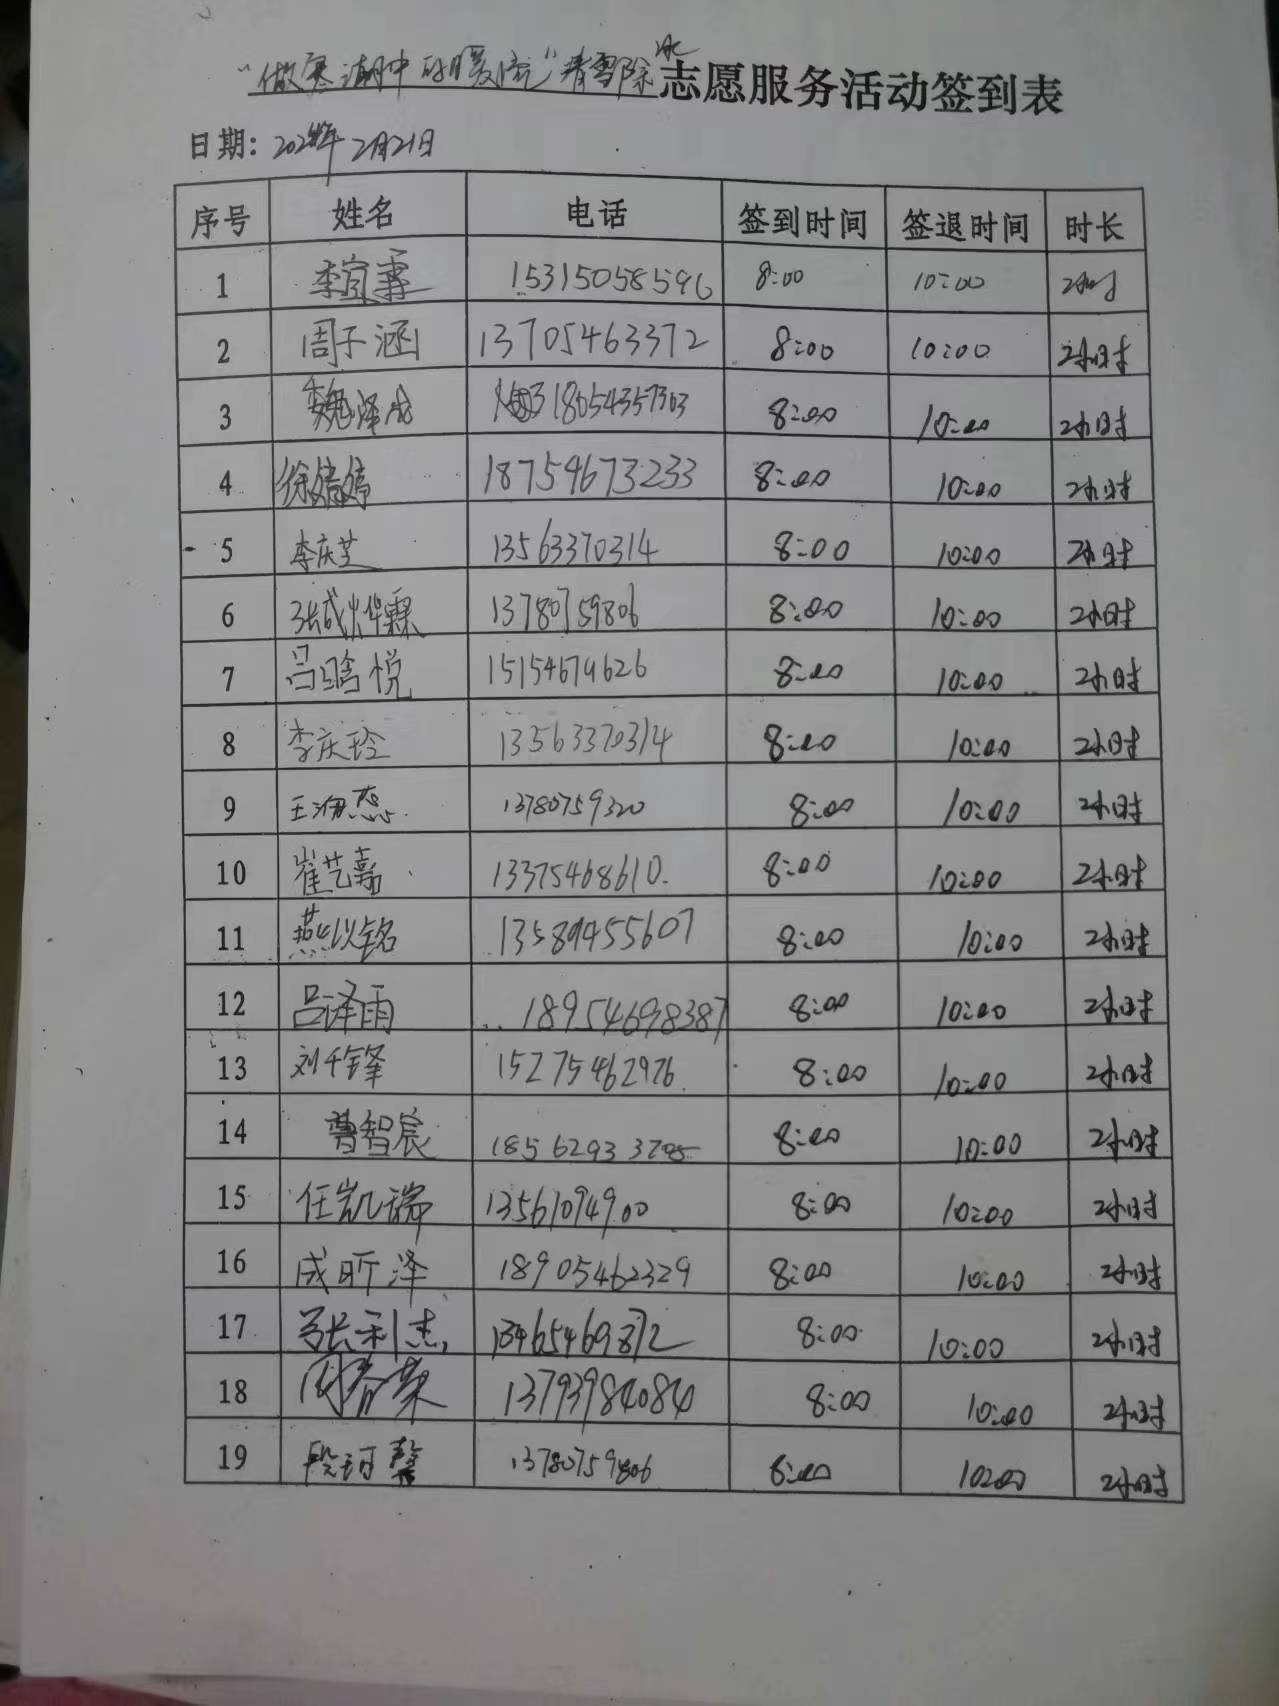 “做寒潮中的暖流”清雪除冰志愿服务活动签到表
日期: 2月21日
序号 姓名 电话 签到时间 签退时间 时长
1 李宜霏 15315058596 8:00 10:00 2小时
2 周子涵 13705463372 8:00 10:00 2小时
3 魏泽成 18054357303 8:00 10:00 2小时
4 徐婧婷 18754673233 8:00 10:00 2小时
5 李庆芝 13563370314 8:00 10:00 2小时
6 张烨霖 13780759806 8:00 10:00 2小时
7 吕晗悦 15154679626 8:00 10:00 2小时
8 李庆玲 13563370314 8:00 10:00 2小时
9 王 13780759320 8:00 10:00 2小时
10 崔艺嘉 13375468610 8:00 10:00 2小时
11 燕以铭 13589455607 8:00 10:00 2小时
12 吕泽雨 18954698387 8:00 10:00 2小时
13 刘千锋 15275462976 8:00 10:00 2小时
14 曹智宸 8:00 10:00 2小时
15 任凯瑞 13561094900 8:00 10:00 2小时
16 成昕泽 18905462329 8:00 10:00 2小时
17 张利杰 13465469872 8:00 10:00 2小时
18 周春荣 13793984084 8:00 10:00 2小时
19 段珂馨 13780759806 8:00 10:00 2小时